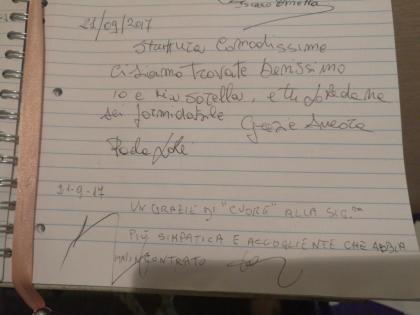 21/09/2017
Struttura Comodissima
Ci siamo trovate benissimo
io e mia sorella, e tu
sei formidabile Grazie Ancora
21-9-17
UN GRAZIE DI "CUORE" ALLA SIG.RA
PIÙ SIMPATICA E ACCOGLIENTE CHE ABBIA
MAI INCONTRATO